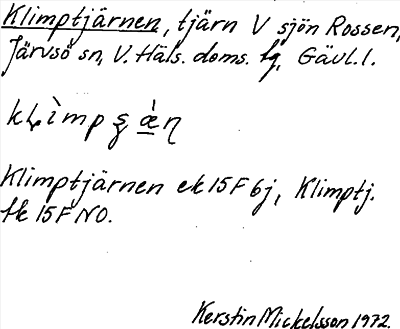 Klimptjärnen, tjärn V sjön Rossen,
Järvsö sn, V. Häls. doms. tg, Gävl. l.
Klimptjärnen ek 15F 6j, Klimptj.
tk 15F NO.
Kerstin Mickelsson 1972.